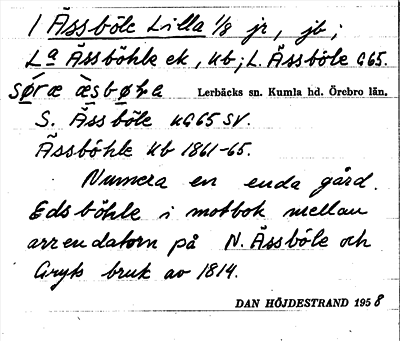 1 Ässböle Lilla 1/8 jr, jb;
La Ässböhle ek, kb; L. Ässböle G65.
søræ æsbøla Lerbäcks sn. Kumla hd. Örebro län.
S. Ässböle KG65 SV.
Ässböhle kb 1861-65.
Numera en enda gård.
Edsböhle i motbok mellan
arrendatorn på N. Ässböle och
Gryts bruk av 1814.
DAN HÖJDESTRAND 1958